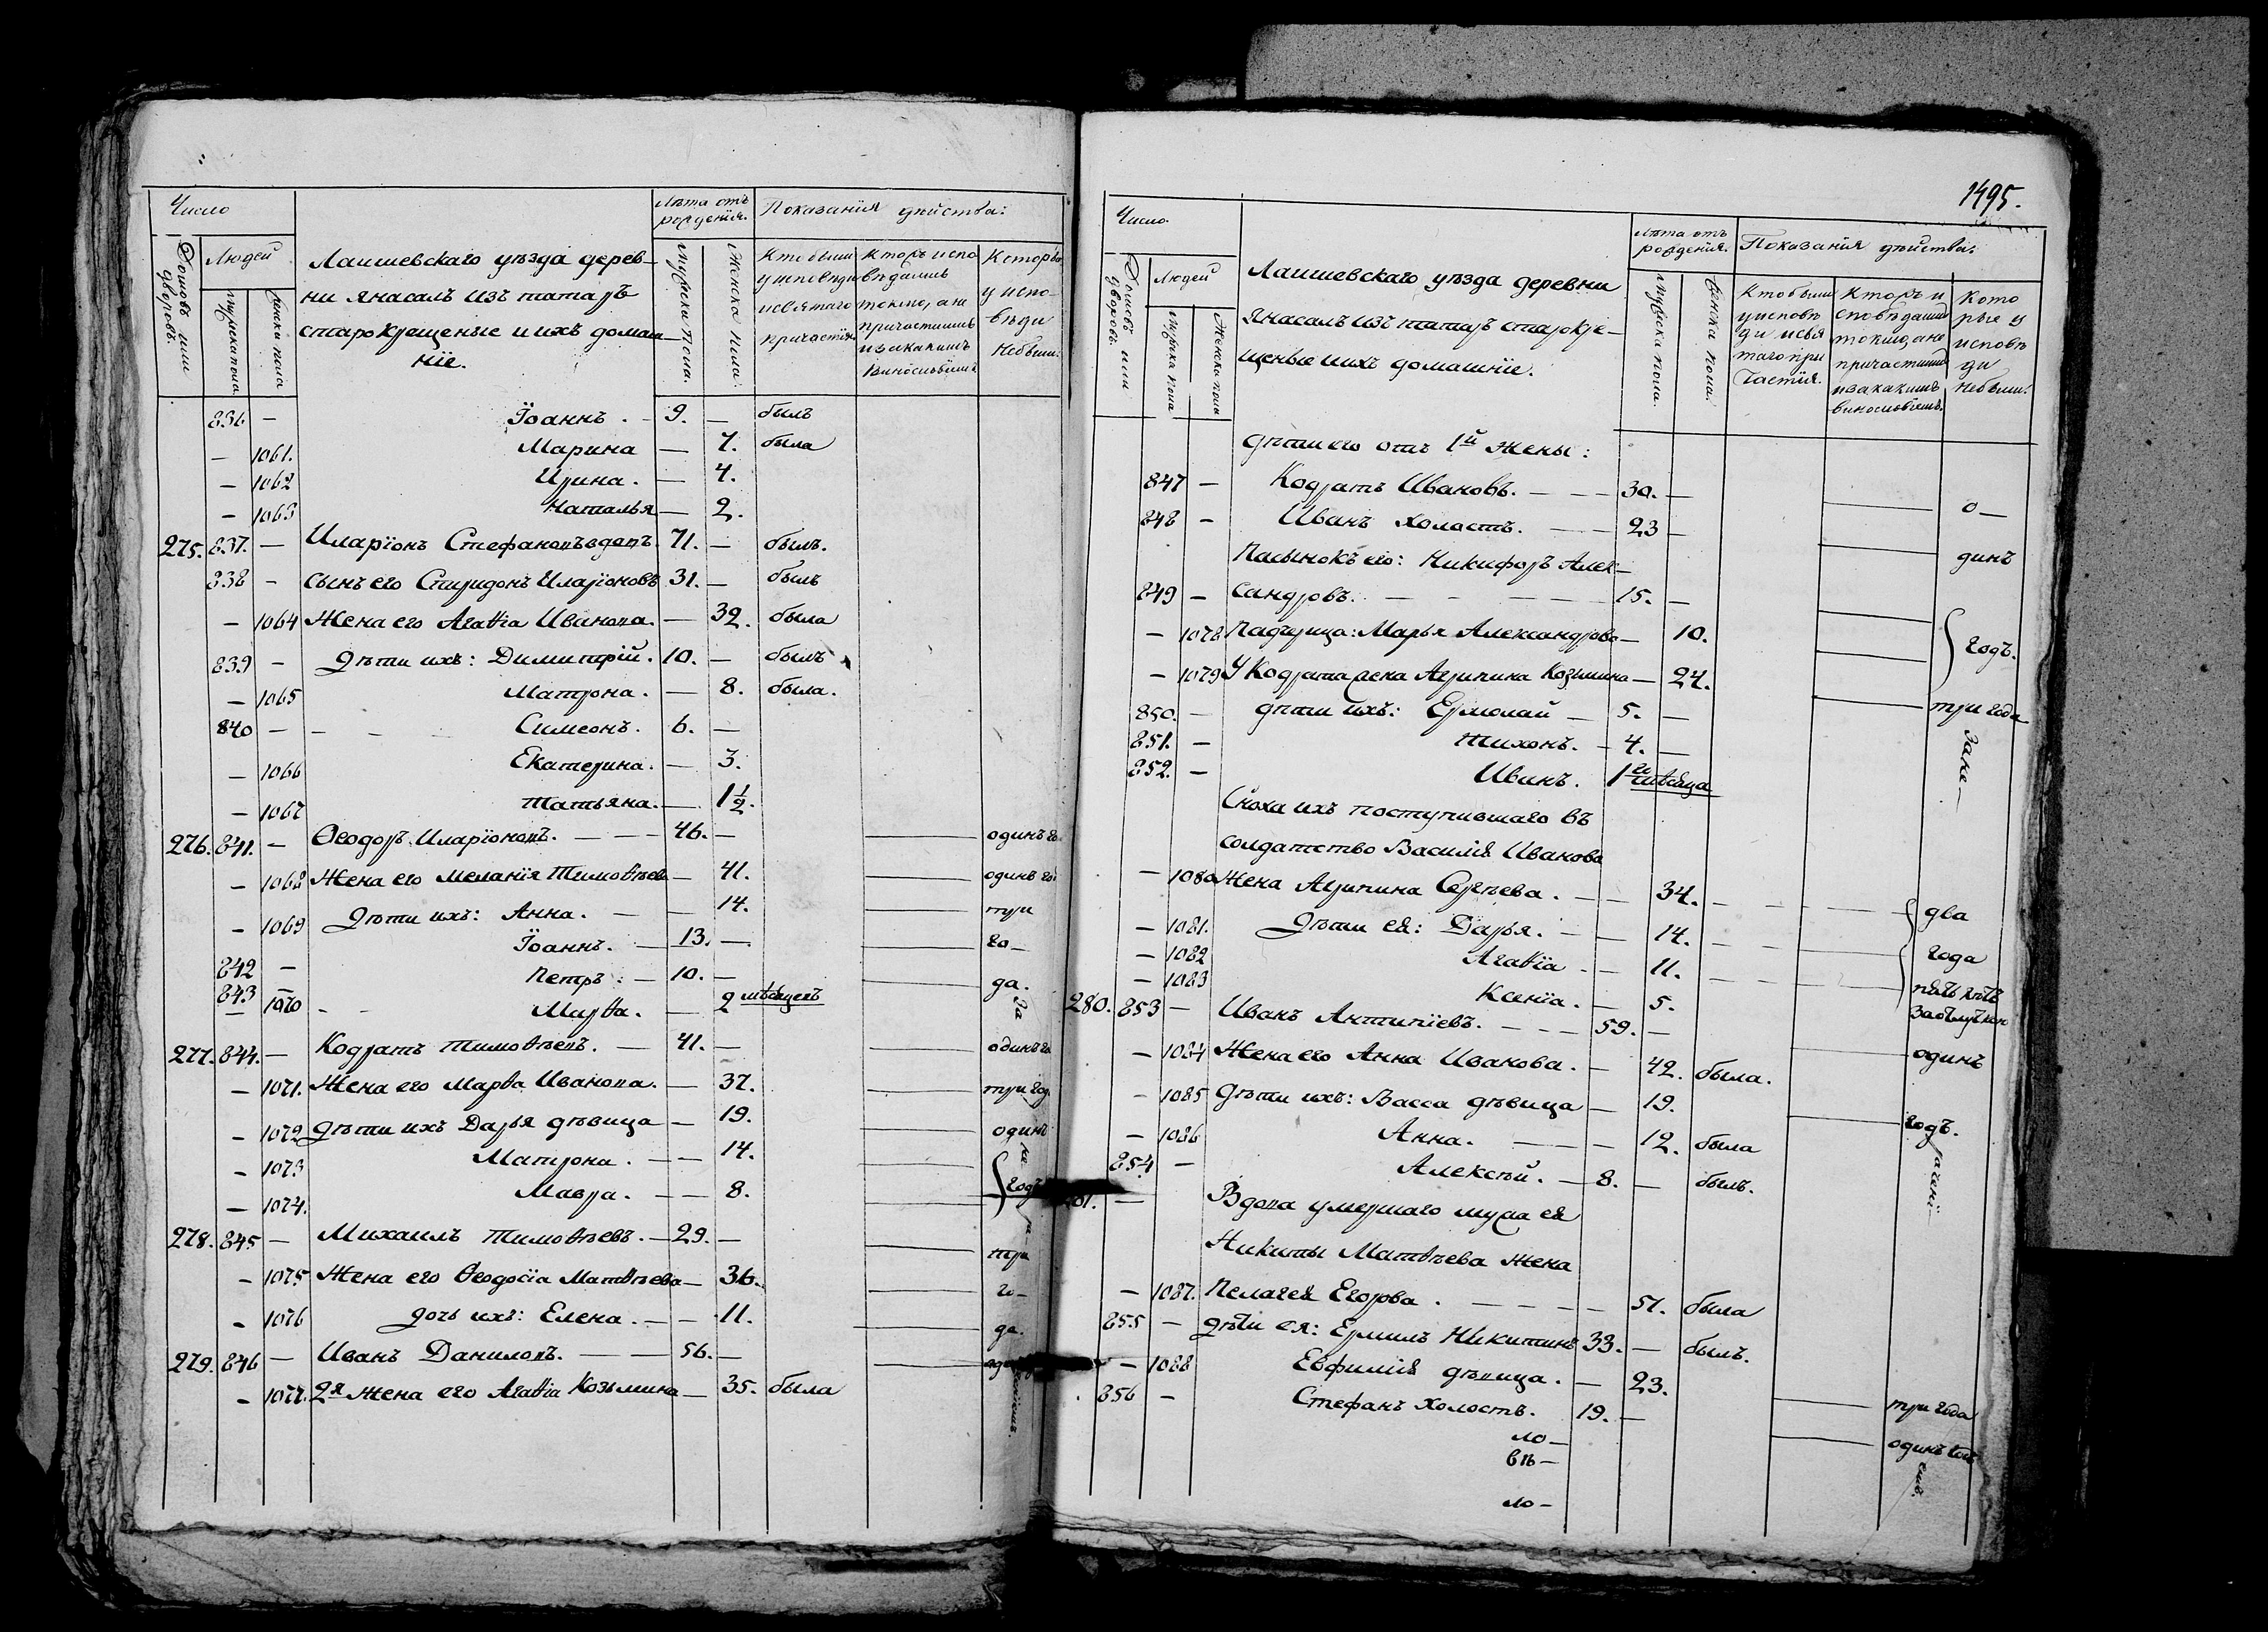 Число
Людей
Домовъ или дворовъ.
мужеска пола
женска пола
Лаишевскаго уѣзда дерев-
ни янасалъ изъ татаръ
старокрещеные и ихъ домаш-
ніе.
Лѣта отъ рожденія.
мужеска пола.
женска пола.
Показанія дѣйства:
Кто были у исповѣди и святаго причастія
Которы у испо- вѣди небыли.
836 — Їоаннъ. - 9. — былъ
— 1061. Марина — 7. была
— 1062 Ирина. — 4.
— 1063 Наталья — 2.
275. 837. — Иларїонъ Стефановъ вдовъ. 71. — былъ.
838 — сынъ его Спиридонъ Иларїоновъ 31. — былъ
— 1064 Жена его Агаѳіа Иванова. — 32. была
839 — Дѣти ихъ: Димитрїй. 10. — былъ
— 1065 Матрона. — 8. была.
840 — — - Симеонъ. 6. —
— 1066 Екатерина. — 3.
— 1067 Татьяна. — 1 1/2.
276. 841. — Ѳеодоръ Иларїоновъ. — — 46. — — одинъ го
— 1068 Жена его Меланїя Тимоѳѣева — 41. — одинъ го
— 1069 Дѣти ихъ: Анна. — — 14. — три
842 — Їоаннъ. — 13. — — го-
843 — Петръ. — 10. — — да.
— 1070 - - Марѳа. — 2 мѣсяцевъ
За
277. 844. — Кодратъ Тимоѳѣевъ. — 41. — — одинъ го
— 1071. Жена его Марѳа Иванова. — 37. — три год.
— 1072 Дѣти ихъ Дарья дѣвица — 19. — одинъ
— 1073 Матрона. — — 14. —
— 1074. Мавра. — — 8. — годъ
278. 845 — Михаилъ Тимоѳѣевъ. — 29. — — три
— 1075 Жена его Ѳеодосїа Матвѣева — 36. — го-
— 1076 дочь ихъ: Елена. — — 11. — да.
279. 846 — Иванъ Даниловъ. — — 56. — —
— 1077. 2я Жена его Агаѳіа Козьмина — 35. была
1495.
Число.
Людей
Домовъ или дворовъ.
мужеска пола
Женска пола
Лаишевскаго уѣзда деревни
янасалъ изъ татаръ старокре-
щеные и ихъ домашнїе.
Лѣта отъ рожденія.
мужеска пола.
женска пола.
Показанія дѣйства:
Кто были у исповѣ ди и свя таго при частїя.
Которыи исповѣдались токмо, а не причастились и за какимъ винословїемъ.
Кото рые у исповѣ ди небыли.
дѣти его отъ 1й Жены:
847 — Кодратъ Ивановъ. — — — 30. — — о —
848 — Иванъ холостъ. — — 23 — — динъ
Пасынокъ его: Никифоръ Алек-
849 — сандровъ. — — — — 15. — —
— 1078 Падчерица: Марья Александрова — 10. — годъ.
— 1079 У Кодрата жена Агрипина Козьмина — 24. — три года
850. — дѣти ихъ: Ермолай — 5. —
851. — Тихонъ. — 4. —
852. — Иванъ. 1го мѣсяца
Зане-
Сноха ихъ поступившаго въ
солдатство Василїя Иванова
— 1080 Жена Агрипина Сергѣева. — — 34. — — — два
— 1081. Дѣти ея: Дарья. — — 14. — — — года
— 1082 Агаѳїа — — 11. — — —
— 1083 Ксенїа. — 5.
280. 853 — Иванъ Антипїевъ. — — — 59. — — одинъ
— 1084 Жена его Анна Иванова. — 42. была.
— 1085 Дѣти ихъ: Васса дѣвица — 19. — годъ.
— 1086 Анна. — — — 12. была
854 — Алексѣй. — 8. — былъ.
281. — Вдова умершаго мужа ея
Никиты Матвѣева Жена
— 1087. Пелагея Егорова. — — — — 51. была
855 — дѣти ея: Ермилъ Никитинъ 33. — былъ.
— 1088 Евфимїя дѣвица. — 23. — три года
856 — Стефанъ холостъ. 19. — — одинъ годъ
ло —
вѣ —
ло —